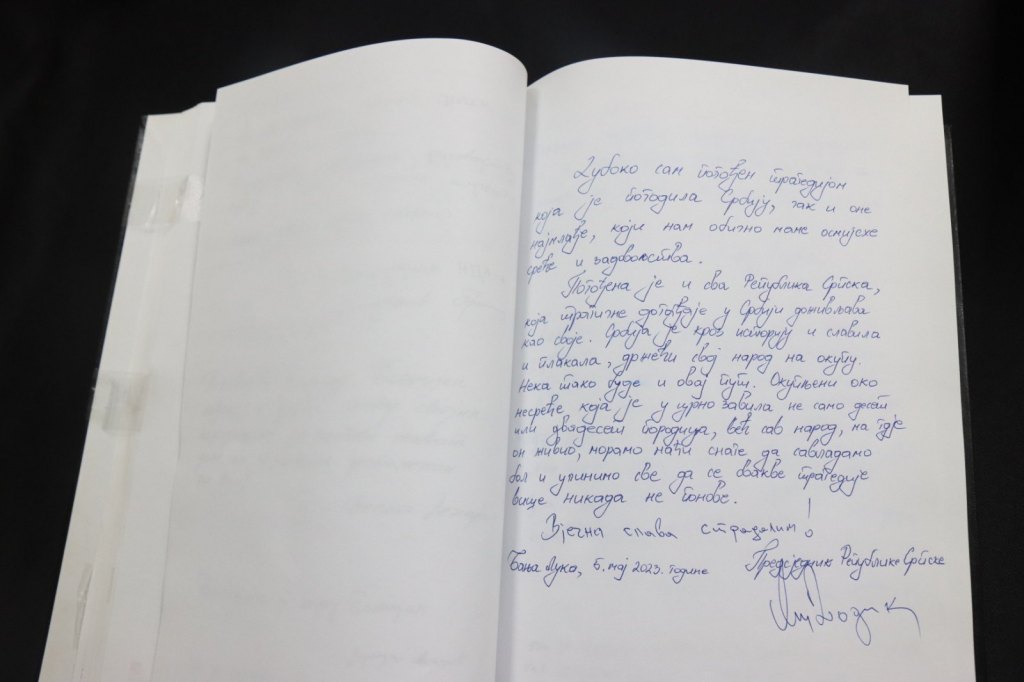 Дубоко сам погођен трагедијом
која је погодила Србију, так и оне
најмлађе, који нам обично маме осмијехе
среће и задовољства.
Погођена је и сва Република Српска,
која трагичне догађаје у Србији доживљава
као своје. Србија је кроз историју и славила
и плакала, држећи свој народ на окупу.
Нека тако буде и овај пут. Окупљени око
несреће која је у црно завила не само десет
или двадесет породица, већ сав народ, ма гдје
он живио, морамо наћи снаге да савладамо
бол и учинимо све да се овакве трагедије
више никада не понове.
Вјечна слава страдалим!
Бања Лука, 5. мај 2023. године Предсједник Републике Српске